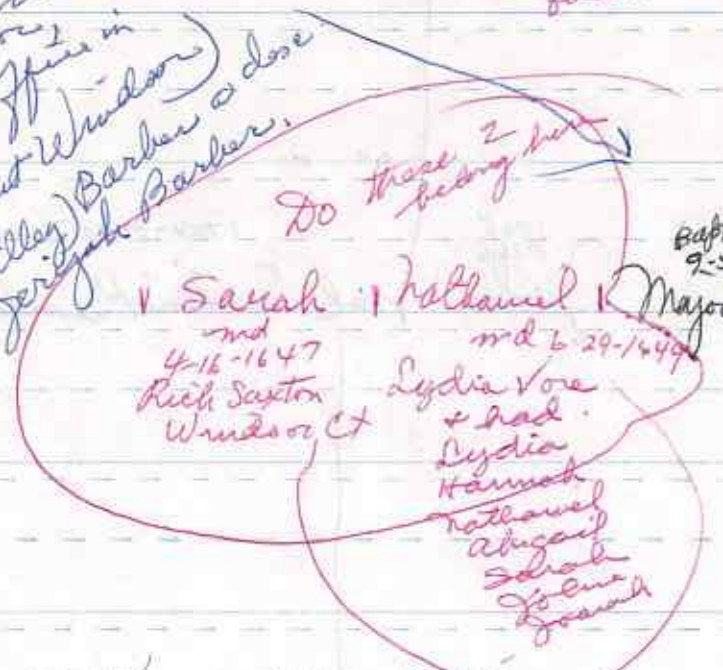 office in
Windsor)
Barber a close
Barber.
Do these 2
belong here
Sarah
md
4-16-1647
Rich Saxton
Windsor, Ct
Nathaniel
md 6 29-1649
Lydia Vore
+ had
Lydia
Hannah
Nathaniel
Abigail
Sarah
Josiah
Major